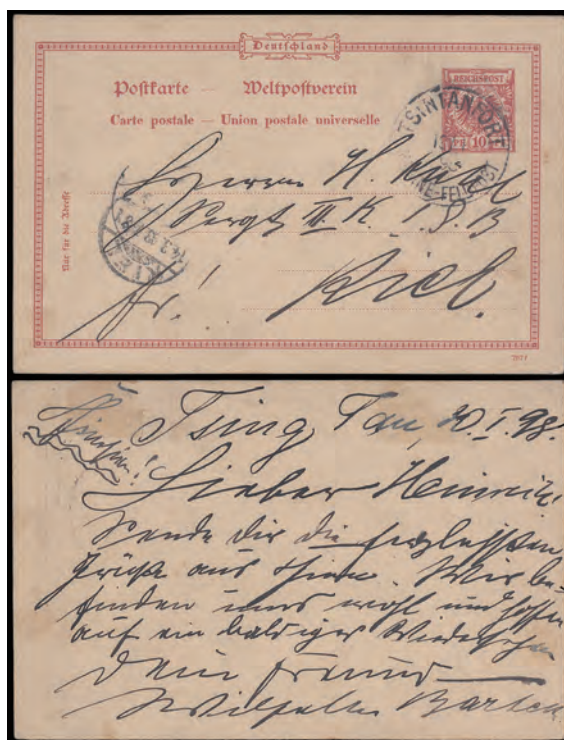 Deutschland
Postkarte — Weltpostverein
Carte postale — Union postale universelle
REICHSPOST
PF 10 PF
TSINTANFORT
MARINE-FELDPOST
Nur für die Adresse
Herrn H.
Sergt III K. I. S. B
KIEL
14.3.98
Kiel.
fr!
Tsing Tau, 20.I.98.
Lieber Heinrich
Sende dir die herzlichsten
Grüße aus China. Wir be-
finden uns wohl und hoffen
auf ein baldiges Wiedersehen
Dein Freund
Wilhelm